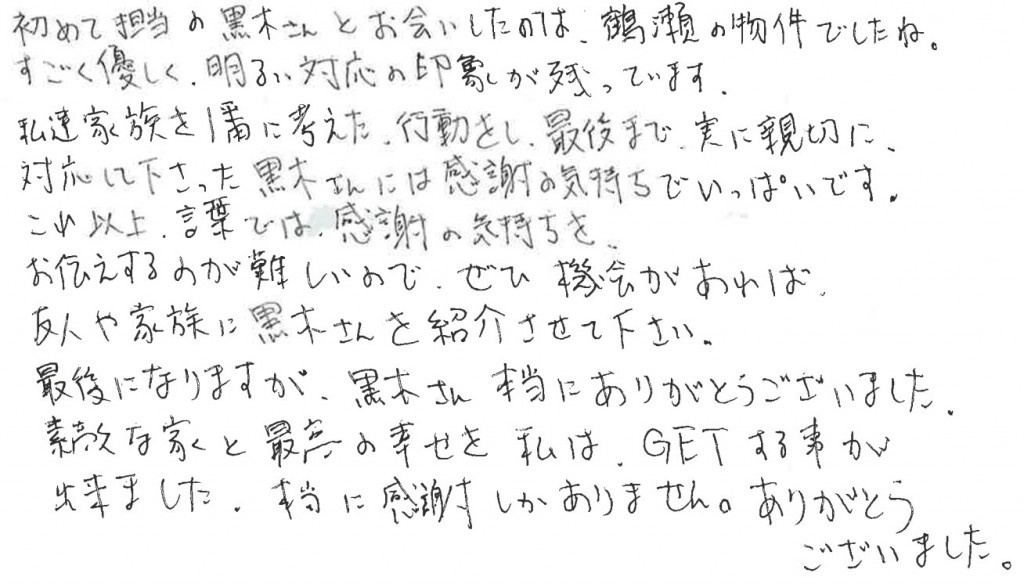 初めて担当の黒木さんとお会いしたのは、鶴瀬の物件でしたね。
すごく優しく、明るい対応の印象が残っています。
私達家族を1番に考えた、行動をし、最後まで、実に親切に、
対応して下さった黒木さんには感謝の気持ちでいっぱいです。
これ以上、言葉では、感謝の気持ちを、
お伝えするのが難しいので、ぜひ機会があれば、
友人や家族に黒木さんを紹介させて下さい。
最後になりますが、黒木さん本当にありがとうございました。
素敵な家と最高の幸せを私は、GETする事が
出来ました。本当に感謝しかありません。ありがとう
ございました。